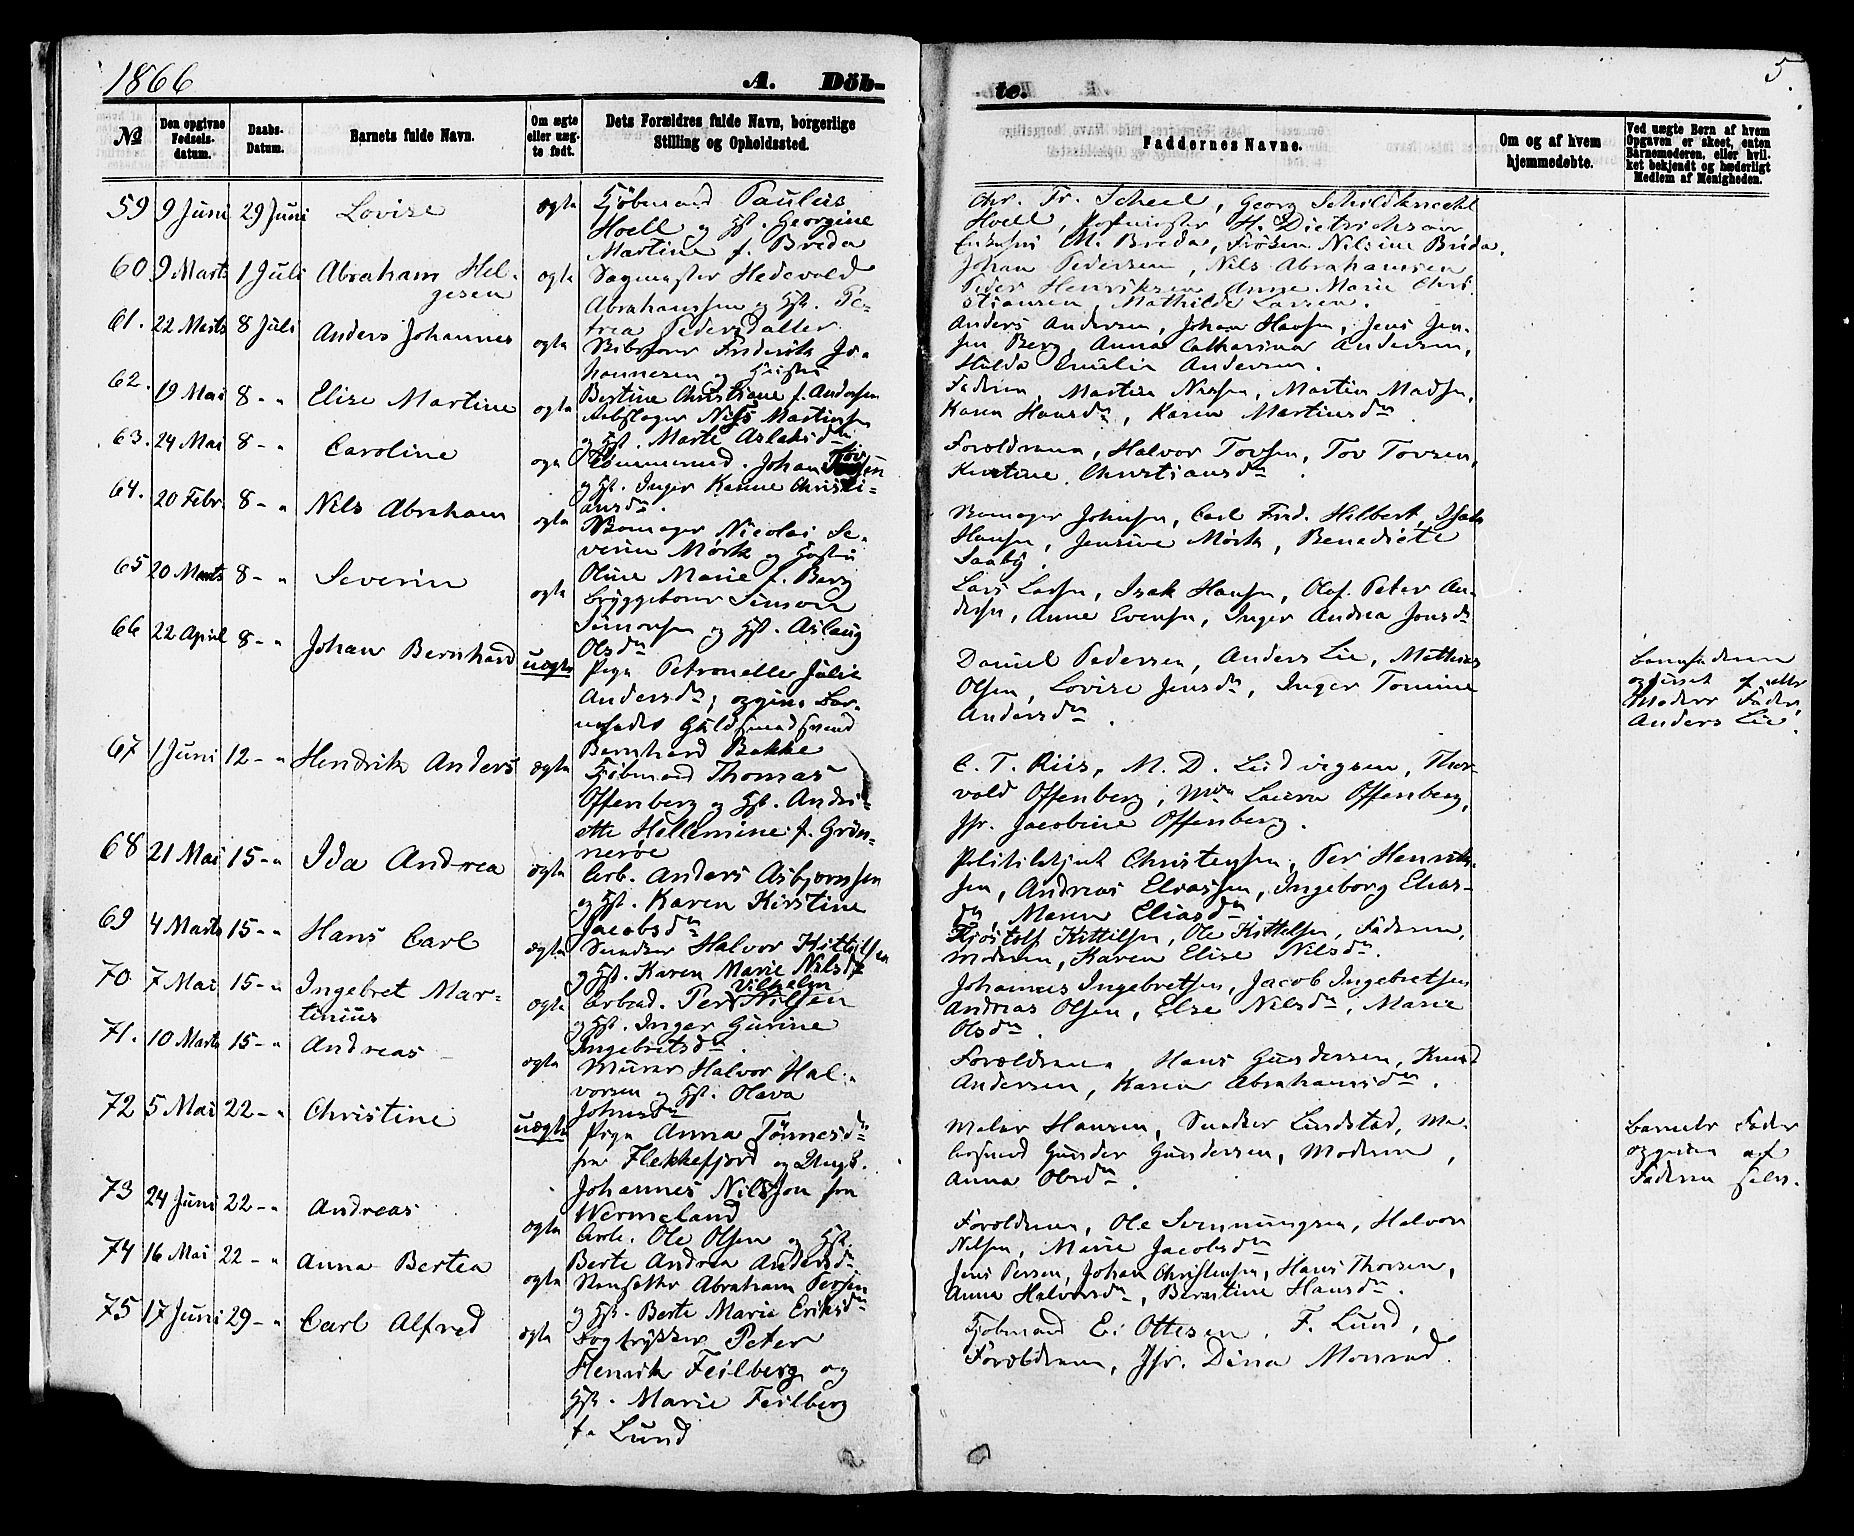 1866
A. Döb-
te.
5.
№
Den opgivne Fødsels-datum.
Daabs-Datum.
Barnets fulde Navn.
Om ægte eller uæg-te født.
Dets Forældres fulde Navn, borgerlige Stilling og Opholdssted.
Faddernes Navne.
Om og af hvem hjemmedøbte.
Ved uægte Børn af hvem Opgaven er skeet, enten Barnemoderen, eller hvil-ket bekjendt og hæderligt Medlem af Menigheden.
59 9 Juni 29 Juni Lovise ægte Kjöbmand Paulus
Hoell og Hst. Georgine
Martine f. Breda
Chr. Fr. Scheel, Georg Schildknecht
Hoell, H. Dietrichson
M. Breda, Fröken Nilsine Breda.
60 9 Marts 1 Juli Abraham Hel-
gesen
ægte Sagmester Hedevold
Abrahamssen og Hst. Pe-
trea Pedersdatter
Johan Pedersen, Nils Abrahamsen
Peder Henriksen, Anne Marie Chri-
stiansen, Mathilde Larsen.
61. 22 Marts 8 Juli Anders Johannes ægte
Frederik Jo-
hannesen og Hustru
Bertine Christiane f. Andersen
Anders Andersen, Johan Hansen, Jens Jen-
sen Berg, Anna Catharina Andersen,
Hulda Emilie Andersen.
62. 19 Mai 8 - " Elise Martine ægte Rebslager Niss Martinsen
og Hst. Marte Aslaksdtr
Faderen, Martin Nissen, Martin Madsen,
Karen Hansdtr, Karen Martinsdtr.
63. 24 Mai 8 - " Caroline ægte Tömmermd. Johan Tovsen
og Hst. Inger Karine Christi-
ansdtr.
Forældrene, Halvor Tovsen, Tov Tovsen,
Kirstine Christiansdtr.
64. 20 Febr. 8 - " Nils Abraham ægte Nicolai Se-
verin Mørk og Hustru
Oline Marie f. Berg
Johnsen, Carl Fred. Hilbert, Isak
Hansen, Jensine Mørk, Benedicte
Saaby.
65 20 Marts 8 - " Severin ægte Bryggeborer Simon
Simonsen og Hst. Aslaug
Olsdtr
Lars Larsen, Isak Hansen, Olaf Peter An-
dersen, Anne Evensen, Inger Andrea Jensdtr
66 22 April 8 - " Johan Bernhard uægte Pige Petronelle Julie
Andersdtr; opgiven Bar-
nefader Guldsmedsvend
Bernhard Bakke
Daniel Pedersen, Anders Lie, Mathias
Olsen, Lovise Jensdtr, Inger Tomine
Andersdtr.
Barnefaderen
opgivet efter
Moders Fader
Anders Lie.
67 1 Juni 12 - " Hendrik Anders ægte Kjöbmand Thomas
Offenberg og Hst. Andri-
ette Hellemine f. Grön-
neröe
C. T. Riis, M. D. Ludvigsen, Thor-
vald Offenberg, Mdm Laura Offenberg,
Jfr. Jacobine Offenberg.
68 21 Mai 15 - " Ida Andrea ægte Arb. Anders Asbjornsen
og Hst. Karen Kirstine
Jacobsdtr
Politibetjent Christensen, Per Henrik-
sen, Andreas Eliassen, Ingeborg Elias-
dtr, Maren Eliasdtr
69 4 Marts 15 - " Hans Carl ægte Snedker Halvor Kittilsen
og Hst. Karen Marie Nilsdtr
Kjöstolf Kittilsen, Ole Kittelsen, Faderen,
Moderen, Karen Elise Nilsdtr.
70 7 Mai 15 - " Ingebret Mar-
tinius
ægte Arbmd. Per Vilhelm Nilsen
og Hst. Inger Gurine
Ingebretsdtr.
Johannes Ingebretsen, Jacob Ingebretsen
Andreas Olsen, Else Nilsdtr, Marie
Olsdtr.
71. 10 Marts 15 - " Andreas ægte Murer Halvor Hal-
vorsen og Hst. Olava
Johnsdtr
Forældrene, Hans Gundersen, Knud
Andersen, Karen Abrahamsdtr.
72 5 Mai 22 - " Christine uægte Pige Anna Tönnesdtr
fra Flekkefjord og Ungk.
Johannes Nilsson fra
Wermeland
Maler Hansen, Snedker Lundstad, Ma-
trosmd Gunder Gundersen, Moderen,
Anna Olsdtr.
Barnets Fader
opgiven af
Faderen selv.
73 24 Juni 22 - " Andreas ægte Arb. Ole Olsen og Hst.
Berte Andrea Andersdtr
Forældrene, Ole Svenningsen, Halvor
Nilsen, Marie Jacobsdtr
74 16 Mai 22 - " Anna Bertea ægte Abraham Persen
og Hst. Berte Marie Eriksdtr
Jens Persen, Johan Christensen, Hans Thorsen,
Anne Halvorsdtr, Berntine Hansdtr.
75 17 Juni 29 - " Carl Alfred ægte Bogtrykker Peter
Henrik Feilberg og
Hst. Marie Feilberg
f. Lund
Kjöbmand E. Ottesen, F. Lund,
Forældrene, Jfr. Dina Monrad.